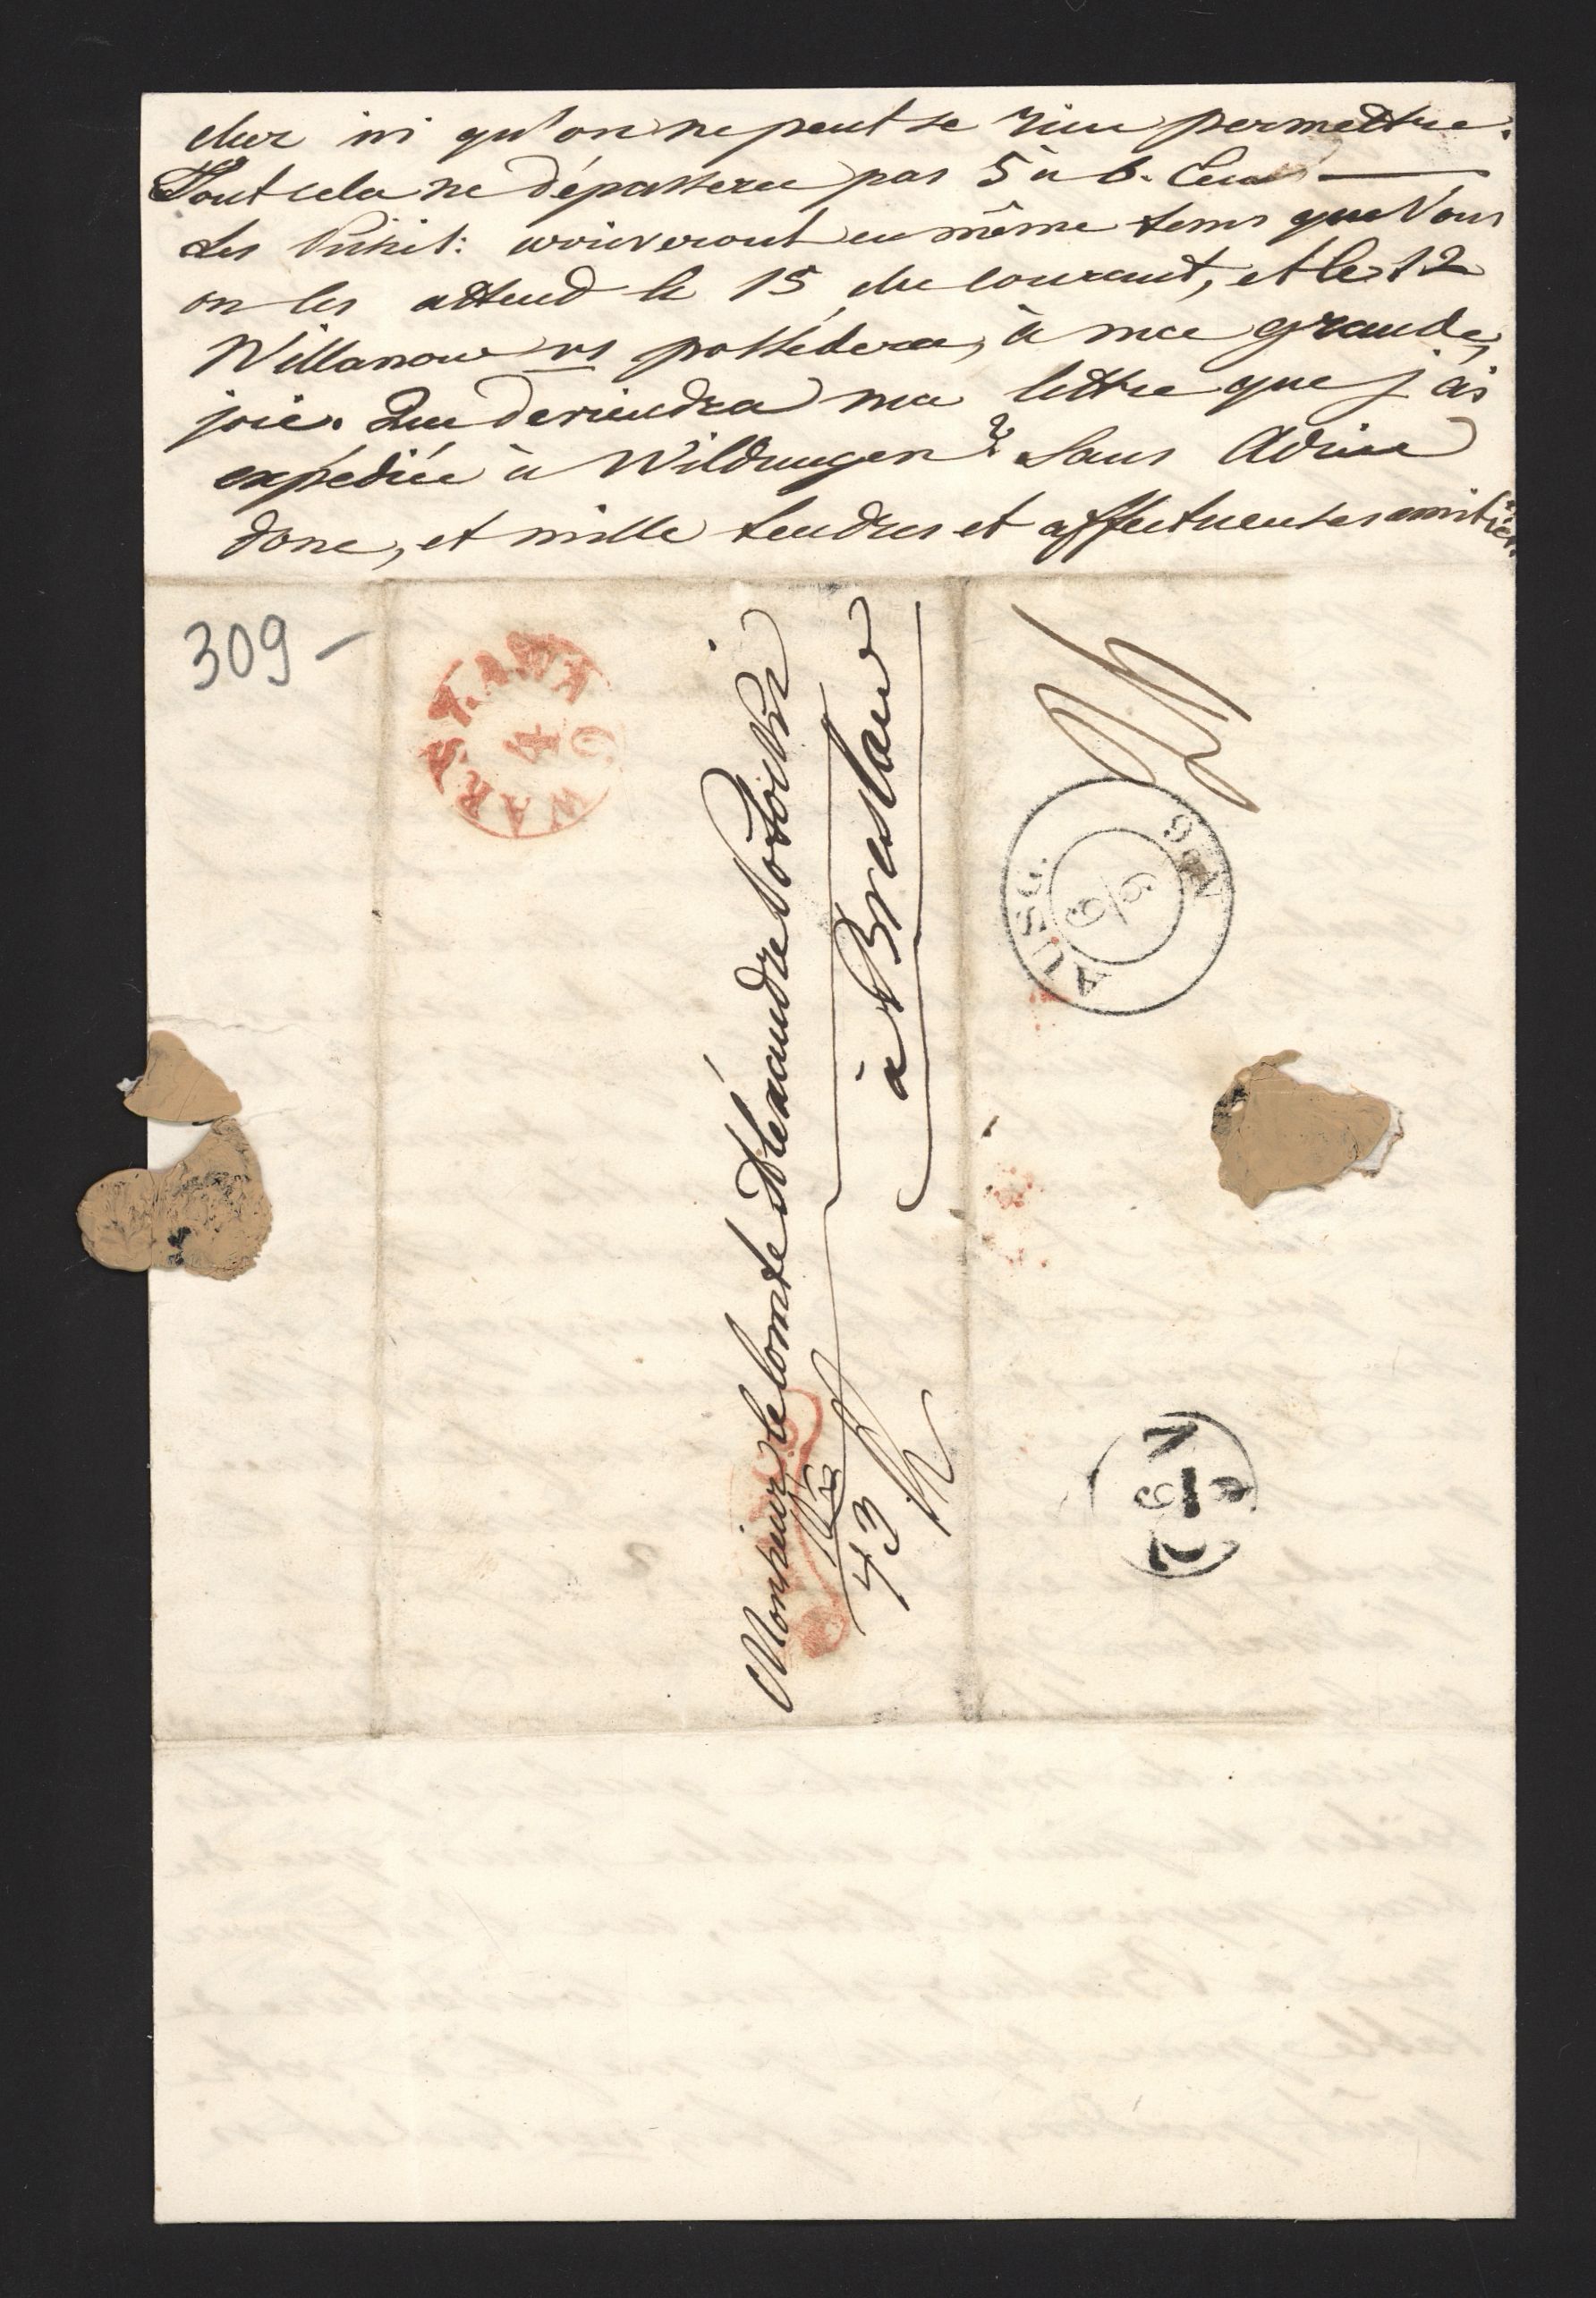 cher ici qu'on ne peut se rien permettre.
Tout cela ne dépassera pas 5 à 6. Ecus
Les arriveront en même tems que Vous
on les attend le 15 du courant, et le 12
Willanow vs possédera, à ma grande
joie. Que deviendra ma lettre que j'ai
expédiée à Wildungen? Sans Adieu
donc, et mille tendres et affectueuses amitiés.
309 -
WARSZAWA
4
9
Monsieur le Comte Aléxandre Potocki
à Breslaw
43
AUSG.
No 6
6/9
N